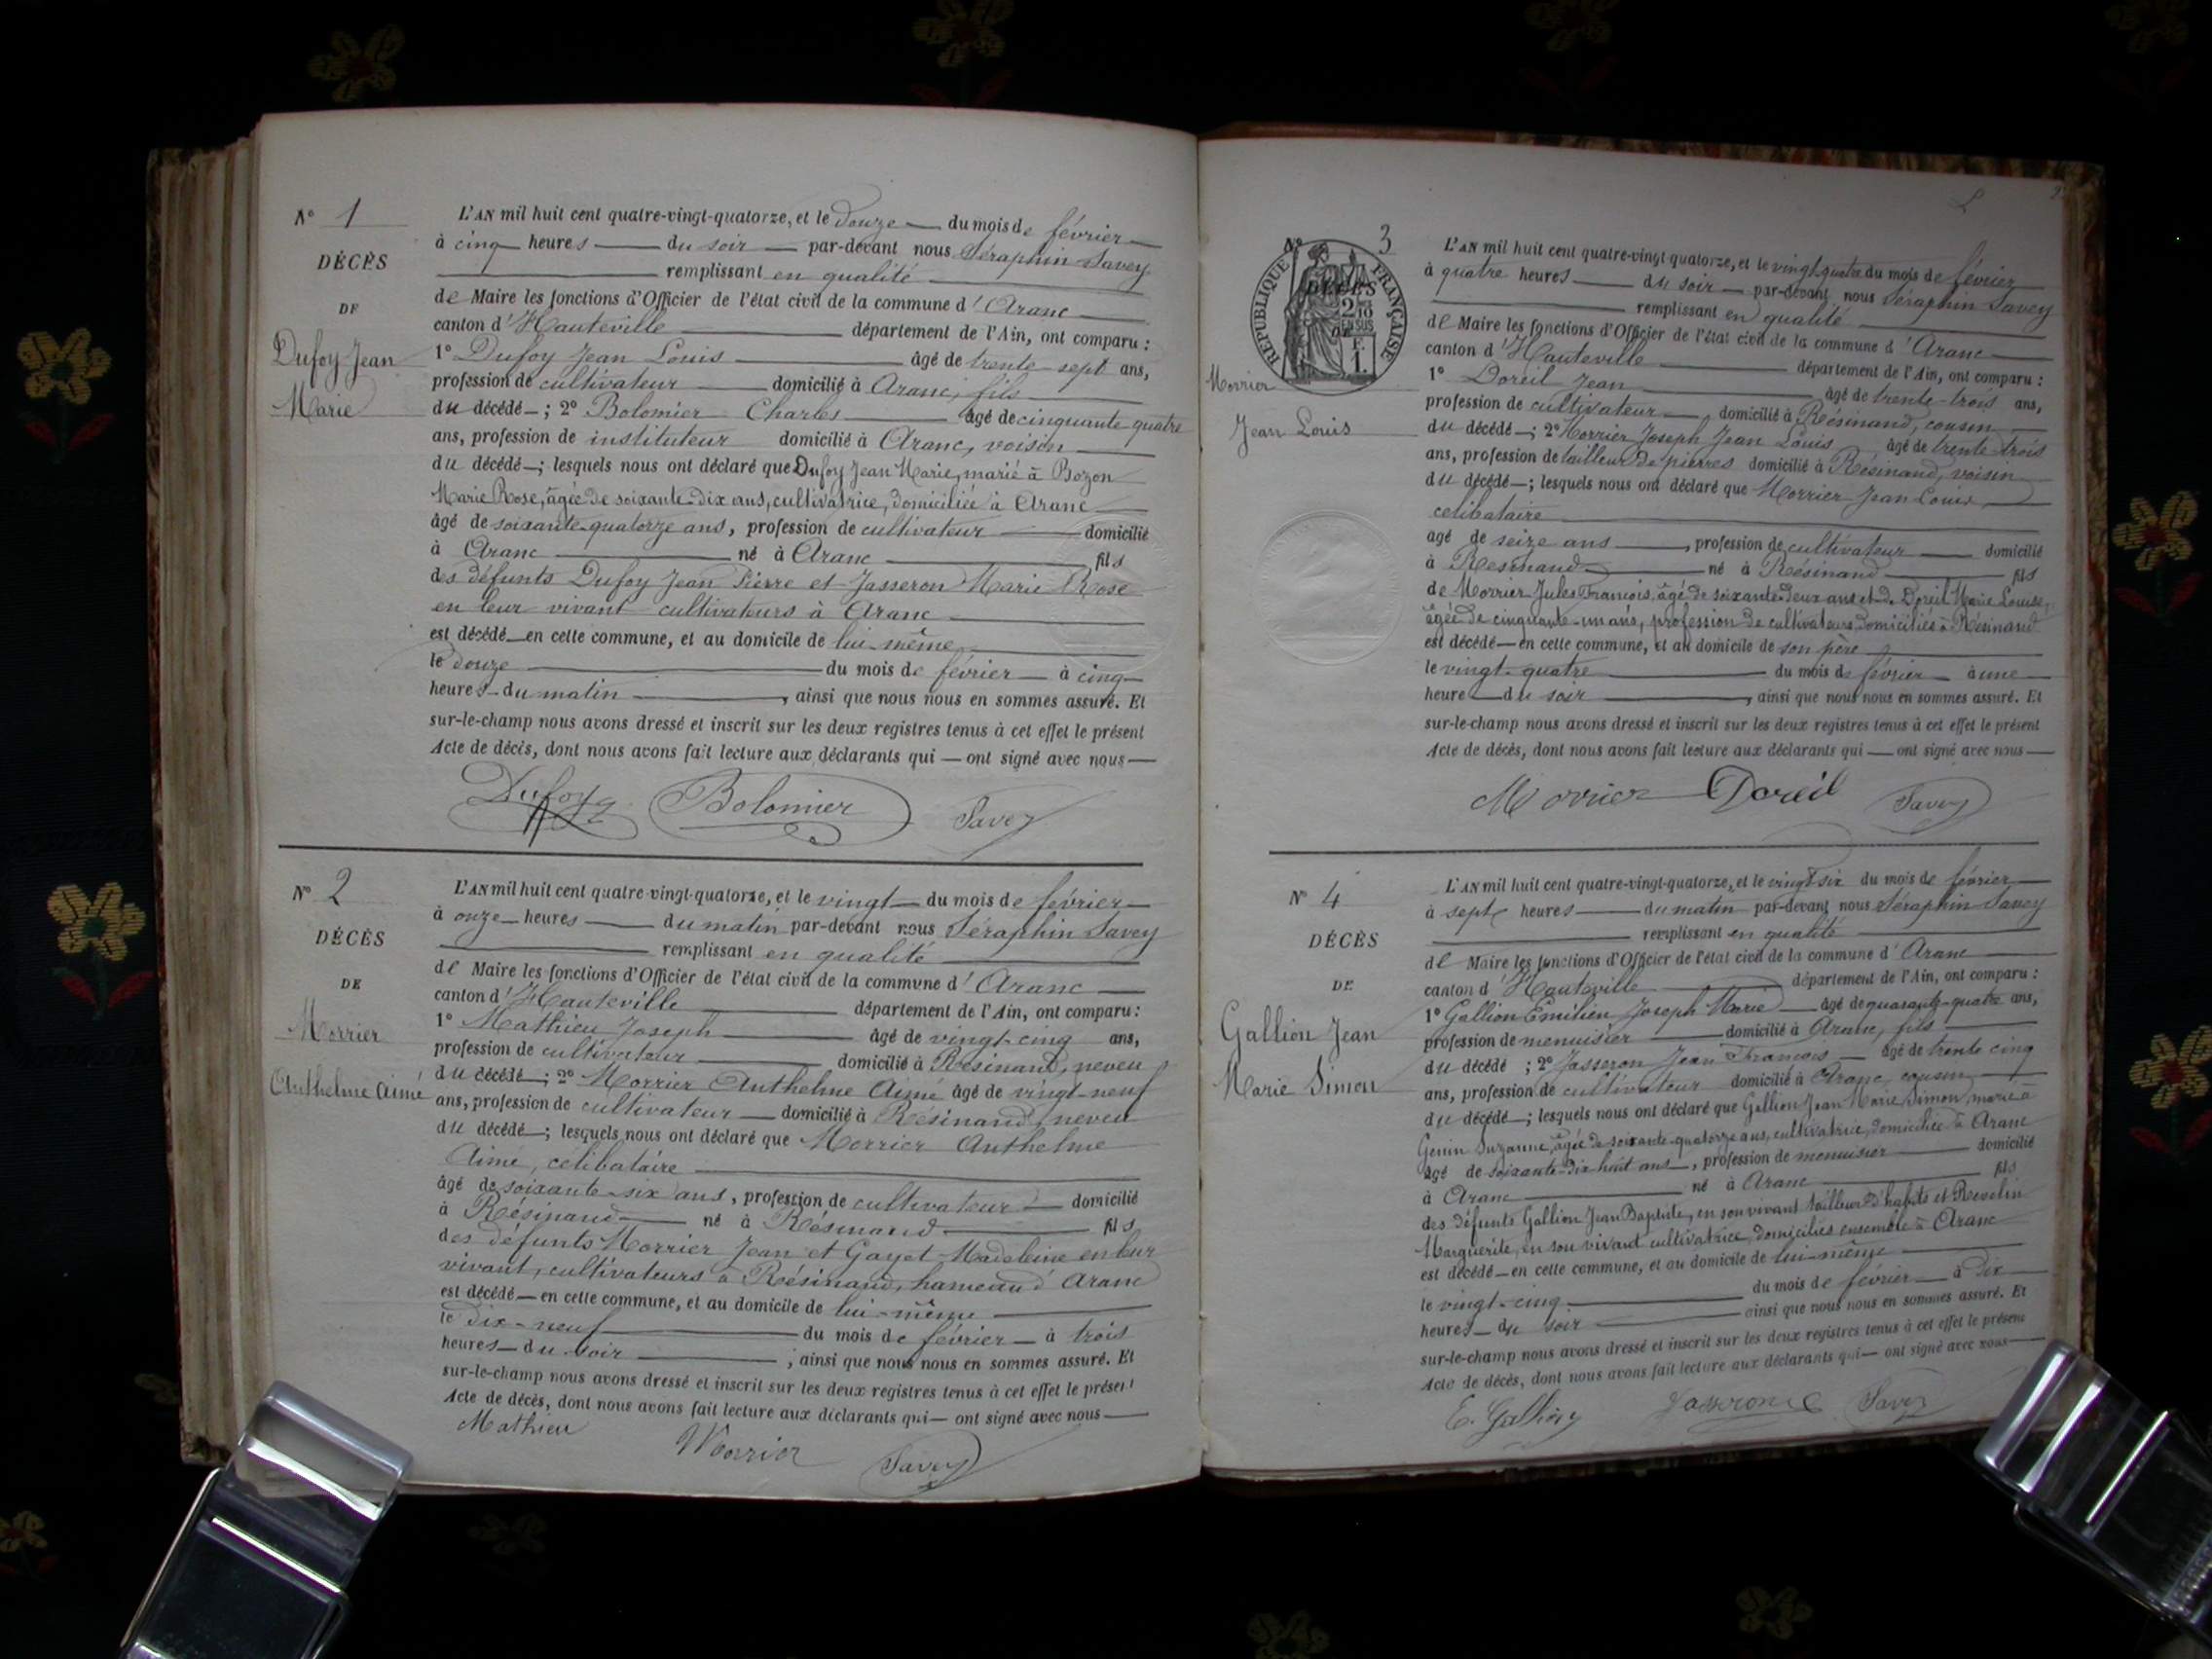 N° 1
DÉCÈS
DE
Dufoy Jean
Marie
L'AN mil huit cent quatre-vingt-quatorze, et le douze du mois de février
à cinq heures du soir par-devant nous Séraphin Savey
remplissant en qualité
de Maire les fonctions d'Officier de l'état civil de la commune d'Aranc
canton d'Hauteville département de l'Ain, ont comparu :
1° Dufoy Jean Louis âgé de trente-sept ans,
profession de cultivateur domicilié à Aranc, fils
du décédé ; 2° Bolomier Charles âgé de cinquante quatre
ans, profession de instituteur domicilié à Aranc, voisin
du décédé ; lesquels nous ont déclaré que Dufoy Jean Marie, marié à Bozon
Marie Rose, âgée de soixante-dix ans, cultivatrice, domiciliée à Aranc
âgé de soixante-quatorze ans, profession de cultivateur domicilié
à Aranc né à Aranc fils
des défunts Dufoy Jean Pierre et Jasseron Marie Rose
en leur vivant cultivateurs à Aranc
est décédé en cette commune, et au domicile de lui-même
le douze du mois de février à cinq
heures du matin, ainsi que nous nous en sommes assuré. Et
sur-le-champ nous avons dressé et inscrit sur les deux registres tenus à cet effet le présent
Acte de décès, dont nous avons fait lecture aux déclarants qui — ont signé avec nous
Dufoy Bolomier Savey
N° 2
DÉCÈS
DE
Morrier
Anthelme Aimé
L'AN mil huit cent quatre-vingt-quatorze, et le vingt du mois de février
à onze heures du matin par-devant nous Séraphin Savey
remplissant en qualité
de Maire les fonctions d'Officier de l'état civil de la commune d'Aranc
canton d'Hauteville département de l'Ain, ont comparu :
1° Mathieu Joseph âgé de vingt-cinq ans,
profession de cultivateur domicilié à Résinand, neveu
du décédé ; 2° Morrier Anthelme Aimé âgé de vingt-neuf
ans, profession de cultivateur domicilié à Résinand, neveu
du décédé ; lesquels nous ont déclaré que Morrier Anthelme
Aimé, celibataire
âgé de soixante-six ans, profession de cultivateur domicilié
à Résinand né à Résinand fils
des défunts Morrier Jean et Gayet Madeleine en leur
vivant, cultivateurs à Résinand, hameau d'Aranc
est décédé en cette commune, et au domicile de lui-même
le dix-neuf du mois de février à trois
heures du soir ; ainsi que nous nous en sommes assuré. Et
sur-le-champ nous avons dressé et inscrit sur les deux registres tenus à cet effet le présent
Acte de décès, dont nous avons fait lecture aux déclarants qui — ont signé avec nous
Mathieu Morrier Savey
2
N° 3
RÉPUBLIQUE FRANÇAISE
DÉCÈS
DE
Morrier
Jean Louis
L'AN mil huit cent quatre-vingt-quatorze, et le vingt-quatre du mois de février
à quatre heures du soir par-devant nous Séraphin Savey
remplissant en qualité
de Maire les fonctions d'Officier de l'état civil de la commune d'Aranc
canton d'Hauteville département de l'Ain, ont comparu :
1° Doreil Jean âgé de trente-trois ans,
profession de cultivateur, domicilié à Résinand, cousin
du décédé ; 2° Morrier Joseph Jean Louis âgé de trente-trois
ans, profession de tailleur de pierres domicilié à Résinand, voisin
du décédé ; lesquels nous ont déclaré que Morrier Jean Louis
celibataire
agé de seize ans, profession de cultivateur domicilié
à Résinand né à Résinand fils
de Morrier Jules François, âgé de soixante-deux ans et de Doreil Marie Louise,
âgée de cinquante-un ans, profession de cultivateurs domiciliés à Résinand
est décédé en cette commune, et au domicile de son père
le vingt-quatre du mois de février à une
heure du soir, ainsi que nous nous en sommes assuré. Et
sur-le-champ nous avons dressé et inscrit sur les deux registres tenus à cet effet le présent
Acte de décès, dont nous avons fait lecture aux déclarants qui — ont signé avec nous
Morrier Doreil Savey
N° 4
DÉCÈS
DE
Gallion Jean
Marie Simon
L'AN mil huit cent quatre-vingt-quatorze, et le vingt six du mois de février
à sept heures du matin par-devant nous Séraphin Savey
remplissant en qualité
de Maire les fonctions d'Officier de l'état civil de la commune d'Aranc
canton d'Hauteville département de l'Ain, ont comparu :
1° Gallion Emilien Joseph Marie âgé de quarante-quatre ans,
profession de menuisier domicilié à Aranc, fils
du décédé ; 2° Jasseron Jean François âgé de trente cinq
ans, profession de cultivateur domicilié à Aranc, cousin
du décédé ; lesquels nous ont déclaré que Gallion Jean Marie Simon, marié à
Genin Suzanne, âgée de soixante-quatorze ans, cultivatrice, domiciliée à Aranc
âgé de soixante-dix huit ans, profession de menuisier domicilié
à Aranc né à Aranc fils
des défunts Gallion Jean Baptiste, en son vivant tailleur d'habits et Revelin
Marguerite, en son vivant cultivatrice, domiciliés ensemble à Aranc
est décédé en cette commune, et au domicile de lui-même
le vingt-cinq du mois de février à dix
heures du soir ainsi que nous nous en sommes assuré. Et
sur-le-champ nous avons dressé et inscrit sur les deux registres tenus à cet effet le présent
Acte de décès, dont nous avons fait lecture aux déclarants qui — ont signé avec nous
E. Gallion Jasseron Savey